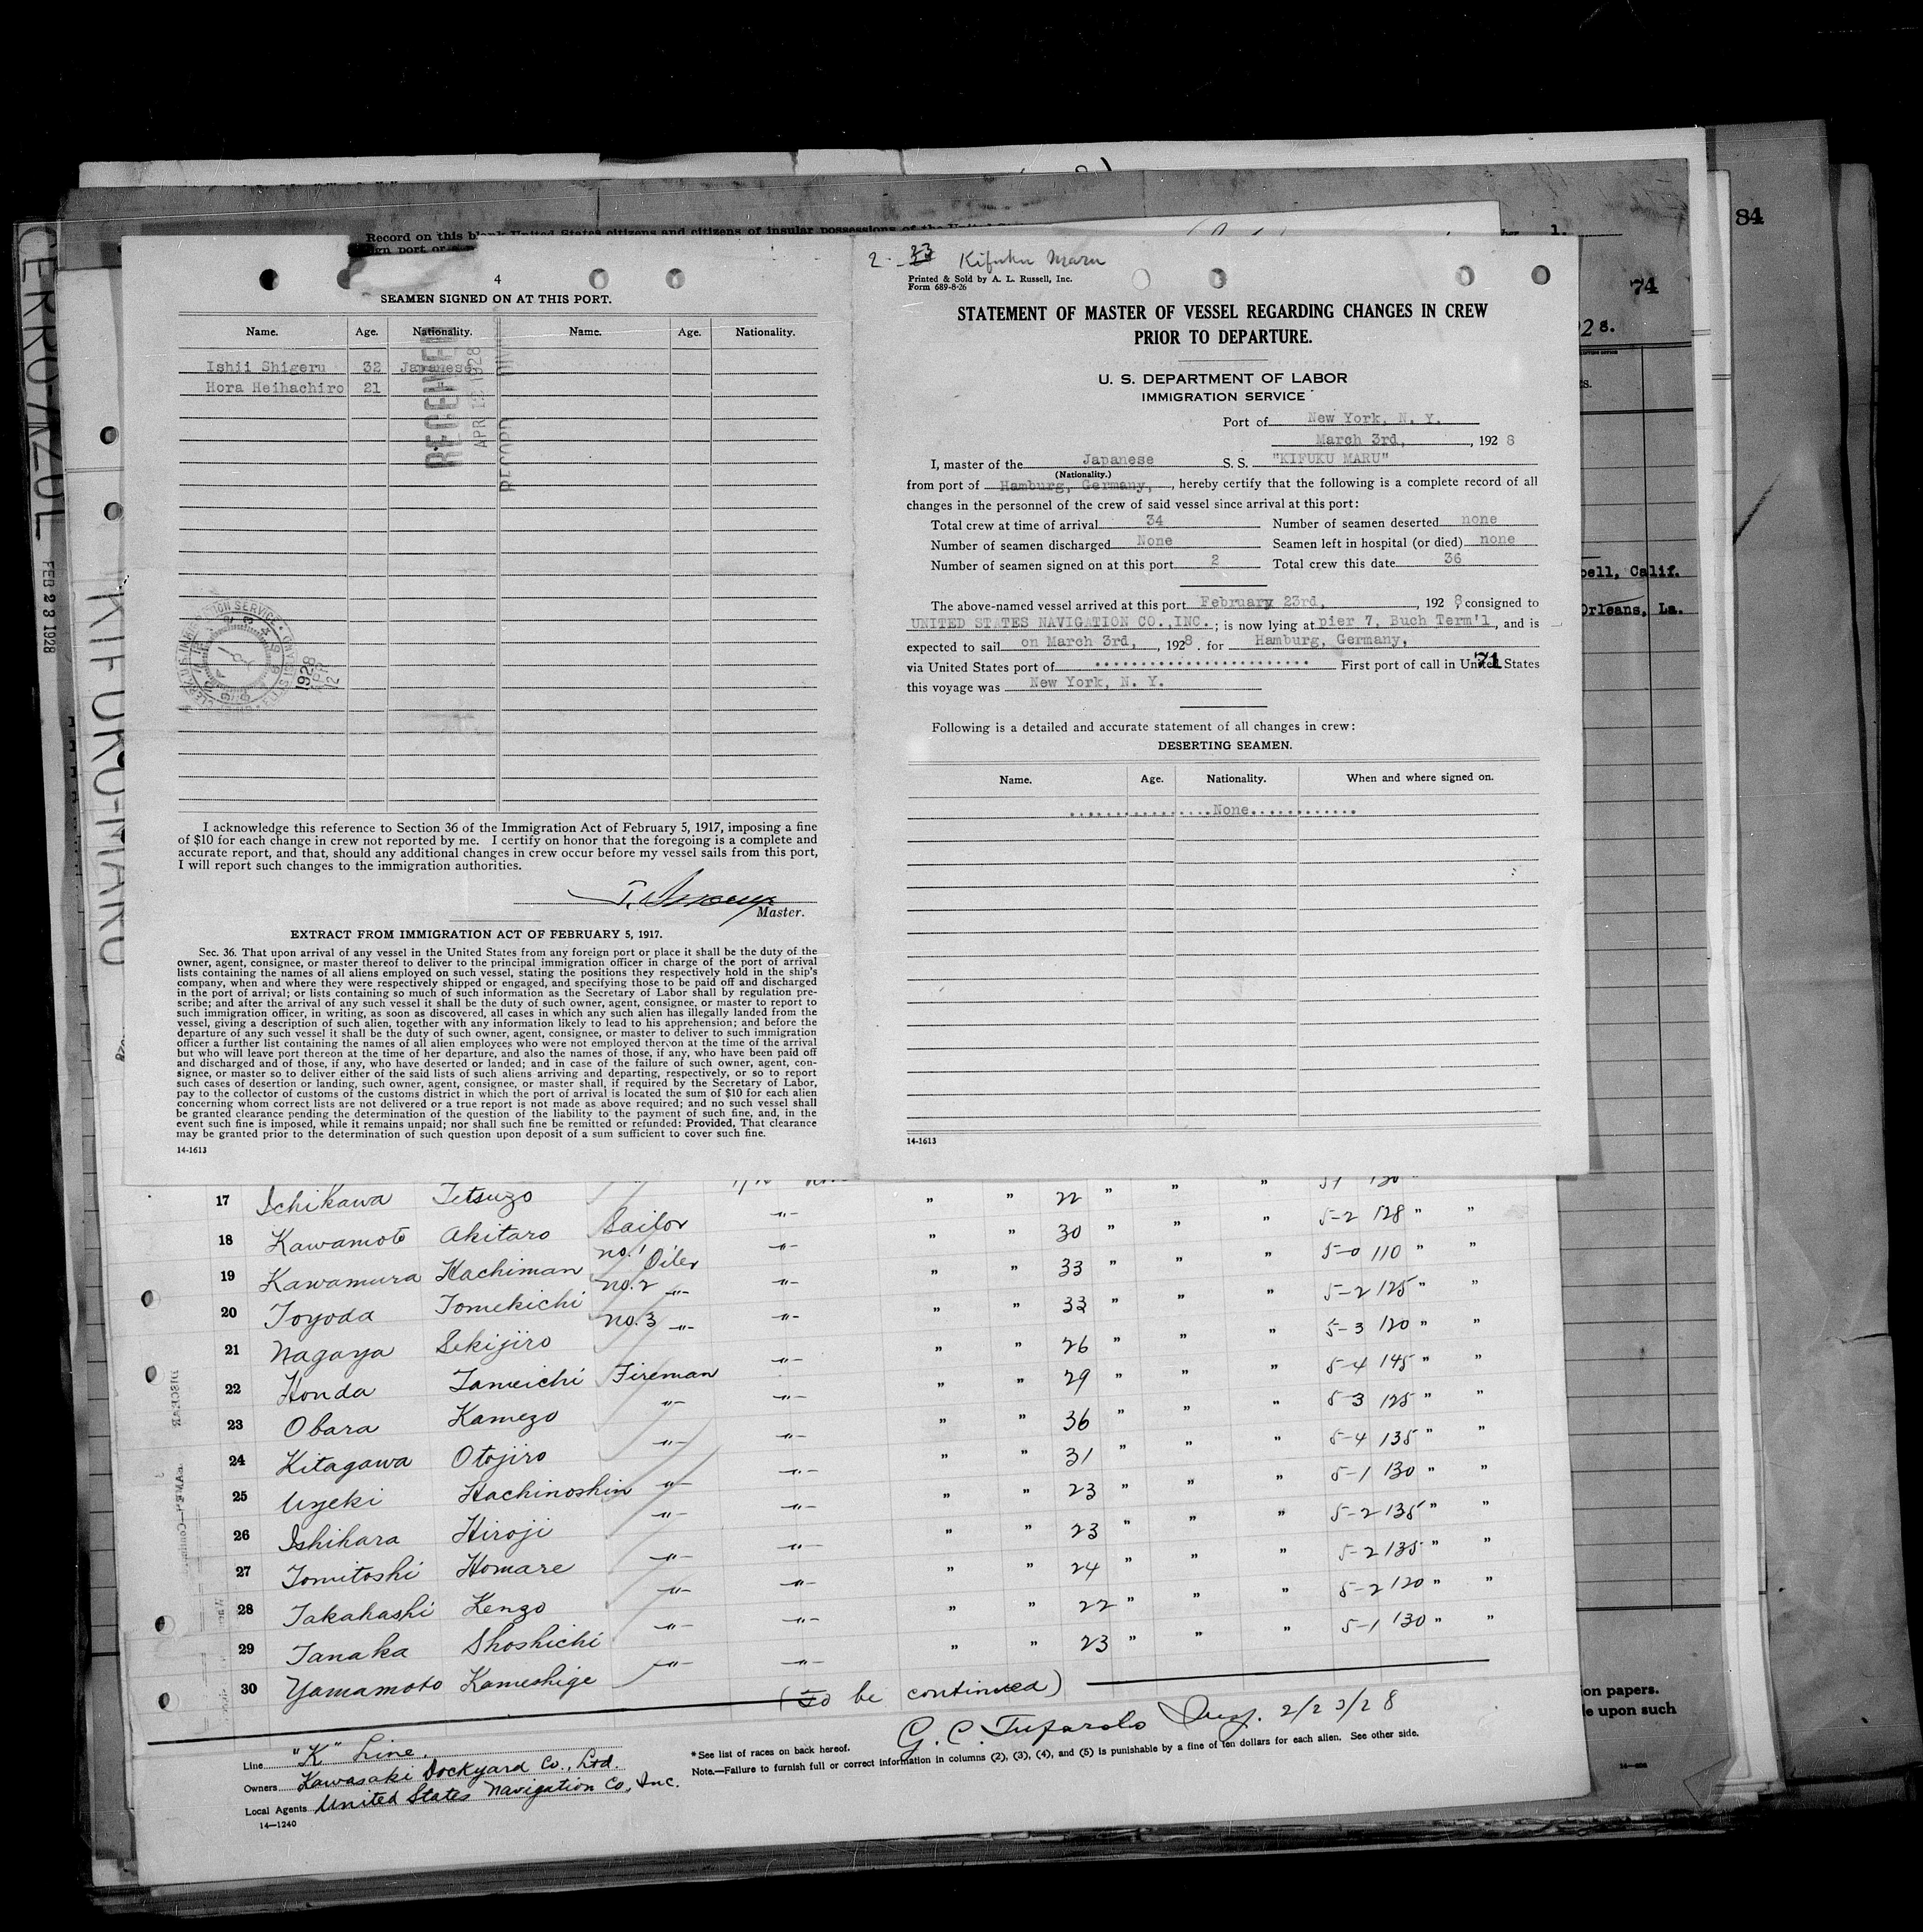 84
74
Record on this blank United States citizens and citizens of insular possessions of the United
CERRO AZUL
FEB 23 1928
KIFUKU-MARU
4
SEAMEN SIGNED ON AT THIS PORT.
Name. Age. Nationality. Name. Age. Nationality.
Ishii Shigeru 32 Japanese
Hora Heihachiro 21 "
RECEIVED
APR 12 1928
RECORD
I acknowledge this reference to Section 36 of the Immigration Act of February 5, 1917, imposing a fine
of $10 for each change in crew not reported by me. I certify on honor that the foregoing is a complete and
accurate report, and that, should any additional changes in crew occur before my vessel sails from this port,
I will report such changes to the immigration authorities.
Master.
EXTRACT FROM IMMIGRATION ACT OF FEBRUARY 5, 1917.
Sec. 36. That upon arrival of any vessel in the United States from any foreign port or place it shall be the duty of the
owner, agent, consignee, or master thereof to deliver to the principal immigration officer in charge of the port of arrival
lists containing the names of all aliens employed on such vessel, stating the positions they respectively hold in the ship's
company, when and where they were respectively shipped or engaged, and specifying those to be paid off and discharged
in the port of arrival; or lists containing so much of such information as the Secretary of Labor shall by regulation pre-
scribe; and after the arrival of any such vessel it shall be the duty of such owner, agent, consignee, or master to report to
such immigration officer, in writing, as soon as discovered, all cases in which any such alien has illegally landed from the
vessel, giving a description of such alien, together with any information likely to lead to his apprehension; and before the
departure of any such vessel it shall be the duty of such owner, agent, consignee, or master to deliver to such immigration
officer a further list containing the names of all alien employees who were not employed thereon at the time of the arrival
but who will leave port thereon at the time of her departure, and also the names of those, if any, who have been paid off
and discharged and of those, if any, who have deserted or landed; and in case of the failure of such owner, agent, con-
signee, or master so to deliver either of the said lists of such aliens arriving and departing, respectively, or so to report
such cases of desertion or landing, such owner, agent, consignee, or master shall, if required by the Secretary of Labor,
pay to the collector of customs of the customs district in which the port of arrival is located the sum of $10 for each alien
concerning whom correct lists are not delivered or a true report is not made as above required; and no such vessel shall
be granted clearance pending the determination of the question of the liability to the payment of such fine, and, in the
event such fine is imposed, while it remains unpaid; nor shall such fine be remitted or refunded: Provided, That clearance
may be granted prior to the determination of such question upon deposit of a sum sufficient to cover such fine.
14-1613
2-23 Kifuku Maru
Printed & Sold by A. L. Russell, Inc.
Form 689-8-26
STATEMENT OF MASTER OF VESSEL REGARDING CHANGES IN CREW
PRIOR TO DEPARTURE.
U. S. DEPARTMENT OF LABOR
IMMIGRATION SERVICE
Port of New York, N. Y.
March 3rd, , 192 8
I, master of the Japanese S. S. "KIFUKU MARU"
(Nationality.)
from port of Hamburg, Germany, , hereby certify that the following is a complete record of all
changes in the personnel of the crew of said vessel since arrival at this port:
Total crew at time of arrival 34 Number of seamen deserted none
Number of seamen discharged None Seamen left in hospital (or died) none
Number of seamen signed on at this port 2 Total crew this date 36
The above-named vessel arrived at this port February 23rd, , 192 8, consigned to
UNITED STATES NAVIGATION CO.,INC. ; is now lying at pier 7, Buch Term'l, and is
expected to sail on March 3rd, , 1928. for Hamburg, Germany,
via United States port of ........................ First port of call in United States
71
this voyage was New York, N. Y.
Following is a detailed and accurate statement of all changes in crew:
DESERTING SEAMEN.
Name. Age. Nationality. When and where signed on.
................None............
14-1613
28.
bell, Calif.
Orleans, La.
ion papers.
le upon such
17 Ichikawa Tetsuzo " " 22 " " "
18 Kawamoto Akitaro Sailor -"- " " 30 " " " 5-2 128 " "
19 Kawamura Hachiman no. 1 Oiler -"- " " 33 " " " 5-0 110 " "
20 Toyoda Tomekichi no. 2 -"- -"- " " 33 " " " 5-2 125 " "
21 Nagaya Sekijiro no. 3 -"- -"- " " 26 " " " 5-3 120 " "
22 Honda Tameichi Fireman -"- " " 29 " " " 5-4 145 " "
23 Obara Kamezo -"- -"- " " 36 " " " 5-3 125 " "
24 Kitagawa Otojiro -"- -"- " " 31 " " " 5-4 135 " "
25 Uyeki Hachinoshin -"- -"- " " 23 " " " 5-1 130 " "
26 Ishihara Hiroji -"- -"- " " 23 " " " 5-2 135 " "
27 Tomitoshi Homare -"- -"- " " 24 " " " 5-2 135 " "
28 Takahashi Kenzo -"- -"- " " 22 " " " 5-2 120 " "
29 Tanaka Shoshichi -"- -"- " " 23 " " " 5-1 130 " "
30 Yamamoto Kameshige -"- -"-
(To be continued)
2/23/28
Line "K" Line.
Owners Kawasaki Dockyard Co., Ltd.
Local Agents United States Navigation Co., Inc.
14—1240
*See list of races on back hereof.
Note.—Failure to furnish full or correct information in columns (2), (3), (4), and (5) is punishable by a fine of ten dollars for each alien. See other side.